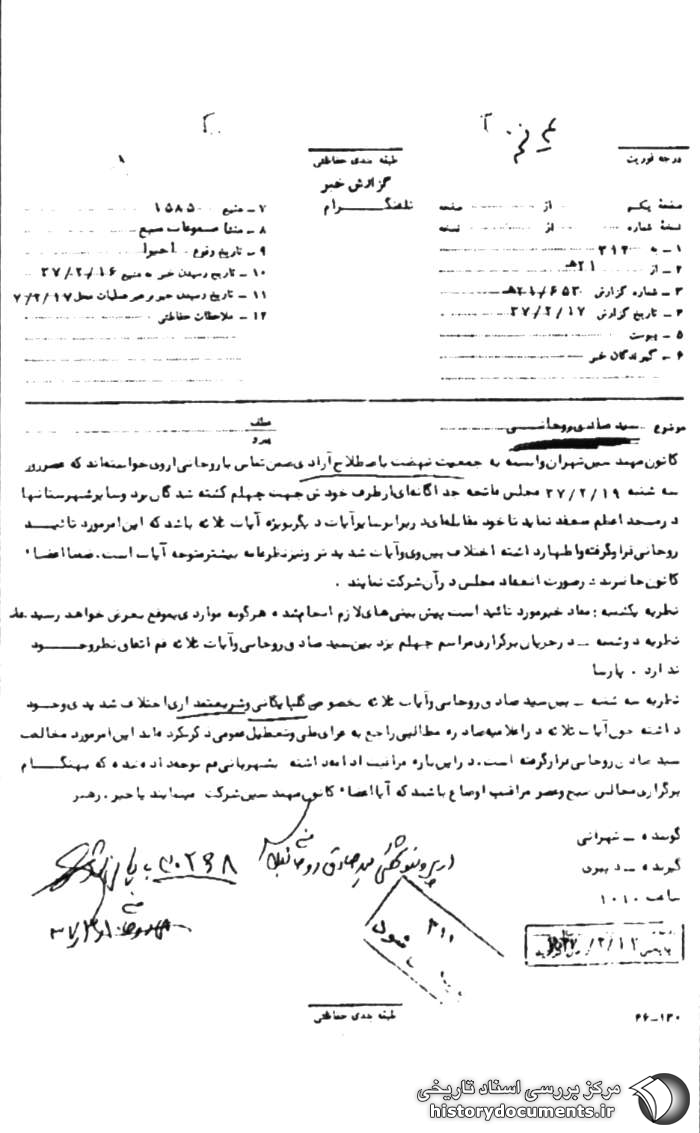 درجه فوریت
طبقه بندی حفاظتی
گزارش خبر
تلفنگرام
صفحهٔ یکم از صفحه
نسخهٔ شماره از نسخه
۱ – به ۳۱۲
۲ – از ۲۱هـ
۳ – شماره گزارش ۲۱/۶۵۳۰هـ
۴ – تاریخ گزارش ۳۷/۲/۱۷
۵ – پیوست
۶ – گیرندگان خبر
۷ – منبع ۱۵۸۵۰
۸ – منشأ مسموعات منبع
۹ – تاریخ وقوع اخیرا
۱۰ – تاریخ رسیدن خبر به منبع ۳۷/۲/۱۶
۱۱ – تاریخ رسیدن خبر برهبر عملیات محل ۷/۲/۱۷
۱۲ – ملاحظات حفاظتی
موضوع سید صادق روحانی
عطف
پیرو
کانون مهندسین تهران وابسته به جمعیت نهضت باصطلاح آزادی ضمن تماس با روحانی از وی خواسته‌اند که عصر روز
سه شنبه ۳۷/۲/۱۹ مجلس فاتحه جداگانه‌ای از طرف خودش جهت چهلم کشته شدگان یزد و سایر شهرستانها
در مسجد اعظم منعقد نماید تا خود مقابله‌ای در برابر سایر آیات دیگر بویژه آیات ثلاثه باشد که این امر مورد تائید
روحانی قرار گرفته و اظهار داشته اختلاف بین وی و آیات شدیدتر و نیز نظر عامه بیشتر متوجه آیات است. ضمنا اعضاء
کانون حاضرند در صورت انعقاد مجلس در آن شرکت نمایند .
نظریه یکشنبه : مفاد خبر مورد تائید است پیش بینی های لازم انجام شده هرگونه مواردی بموقع بعرض خواهد رسید
نظریه دوشنبه – در جریان برگزاری مراسم چهلم یزد بین سید صادق روحانی و آیات ثلاثه قم اتفاق نظر وجود
ندارد . پارسا
نظریه سه شنبه – بین سید صادق روحانی و آیات ثلاثه بخصوص گلپایگانی و شریعتمداری اختلاف شدیدی وجود
داشته چون آیات ثلاثه در اعلامیه صادره مطالبی راجع به عزای ملی و تعطیل عمومی ذکر نکرده‌اند این امر مورد مخالفت
سید صادق روحانی قرار گرفته است. در این باره مراقبت ادامه داشته بشهربانی قم توجه داده شده که بهنگام
برگزاری مجالس صبح و عصر مراقب اوضاع باشند که آیا اعضاء کانون مهندسین شرکت مینمایند یا خیر. رهبر
گوینده – تهرانی
گیرنده – دبیری
ساعت ۱۰۱۰
در پرونده سید صادق روحانی
۴۰۲۶۸
۳۱۱
شود
طبقه بندی حفاظتی
۴۶-۱۳۰
مرکز بررسی اسناد تاریخی
historydocuments.ir